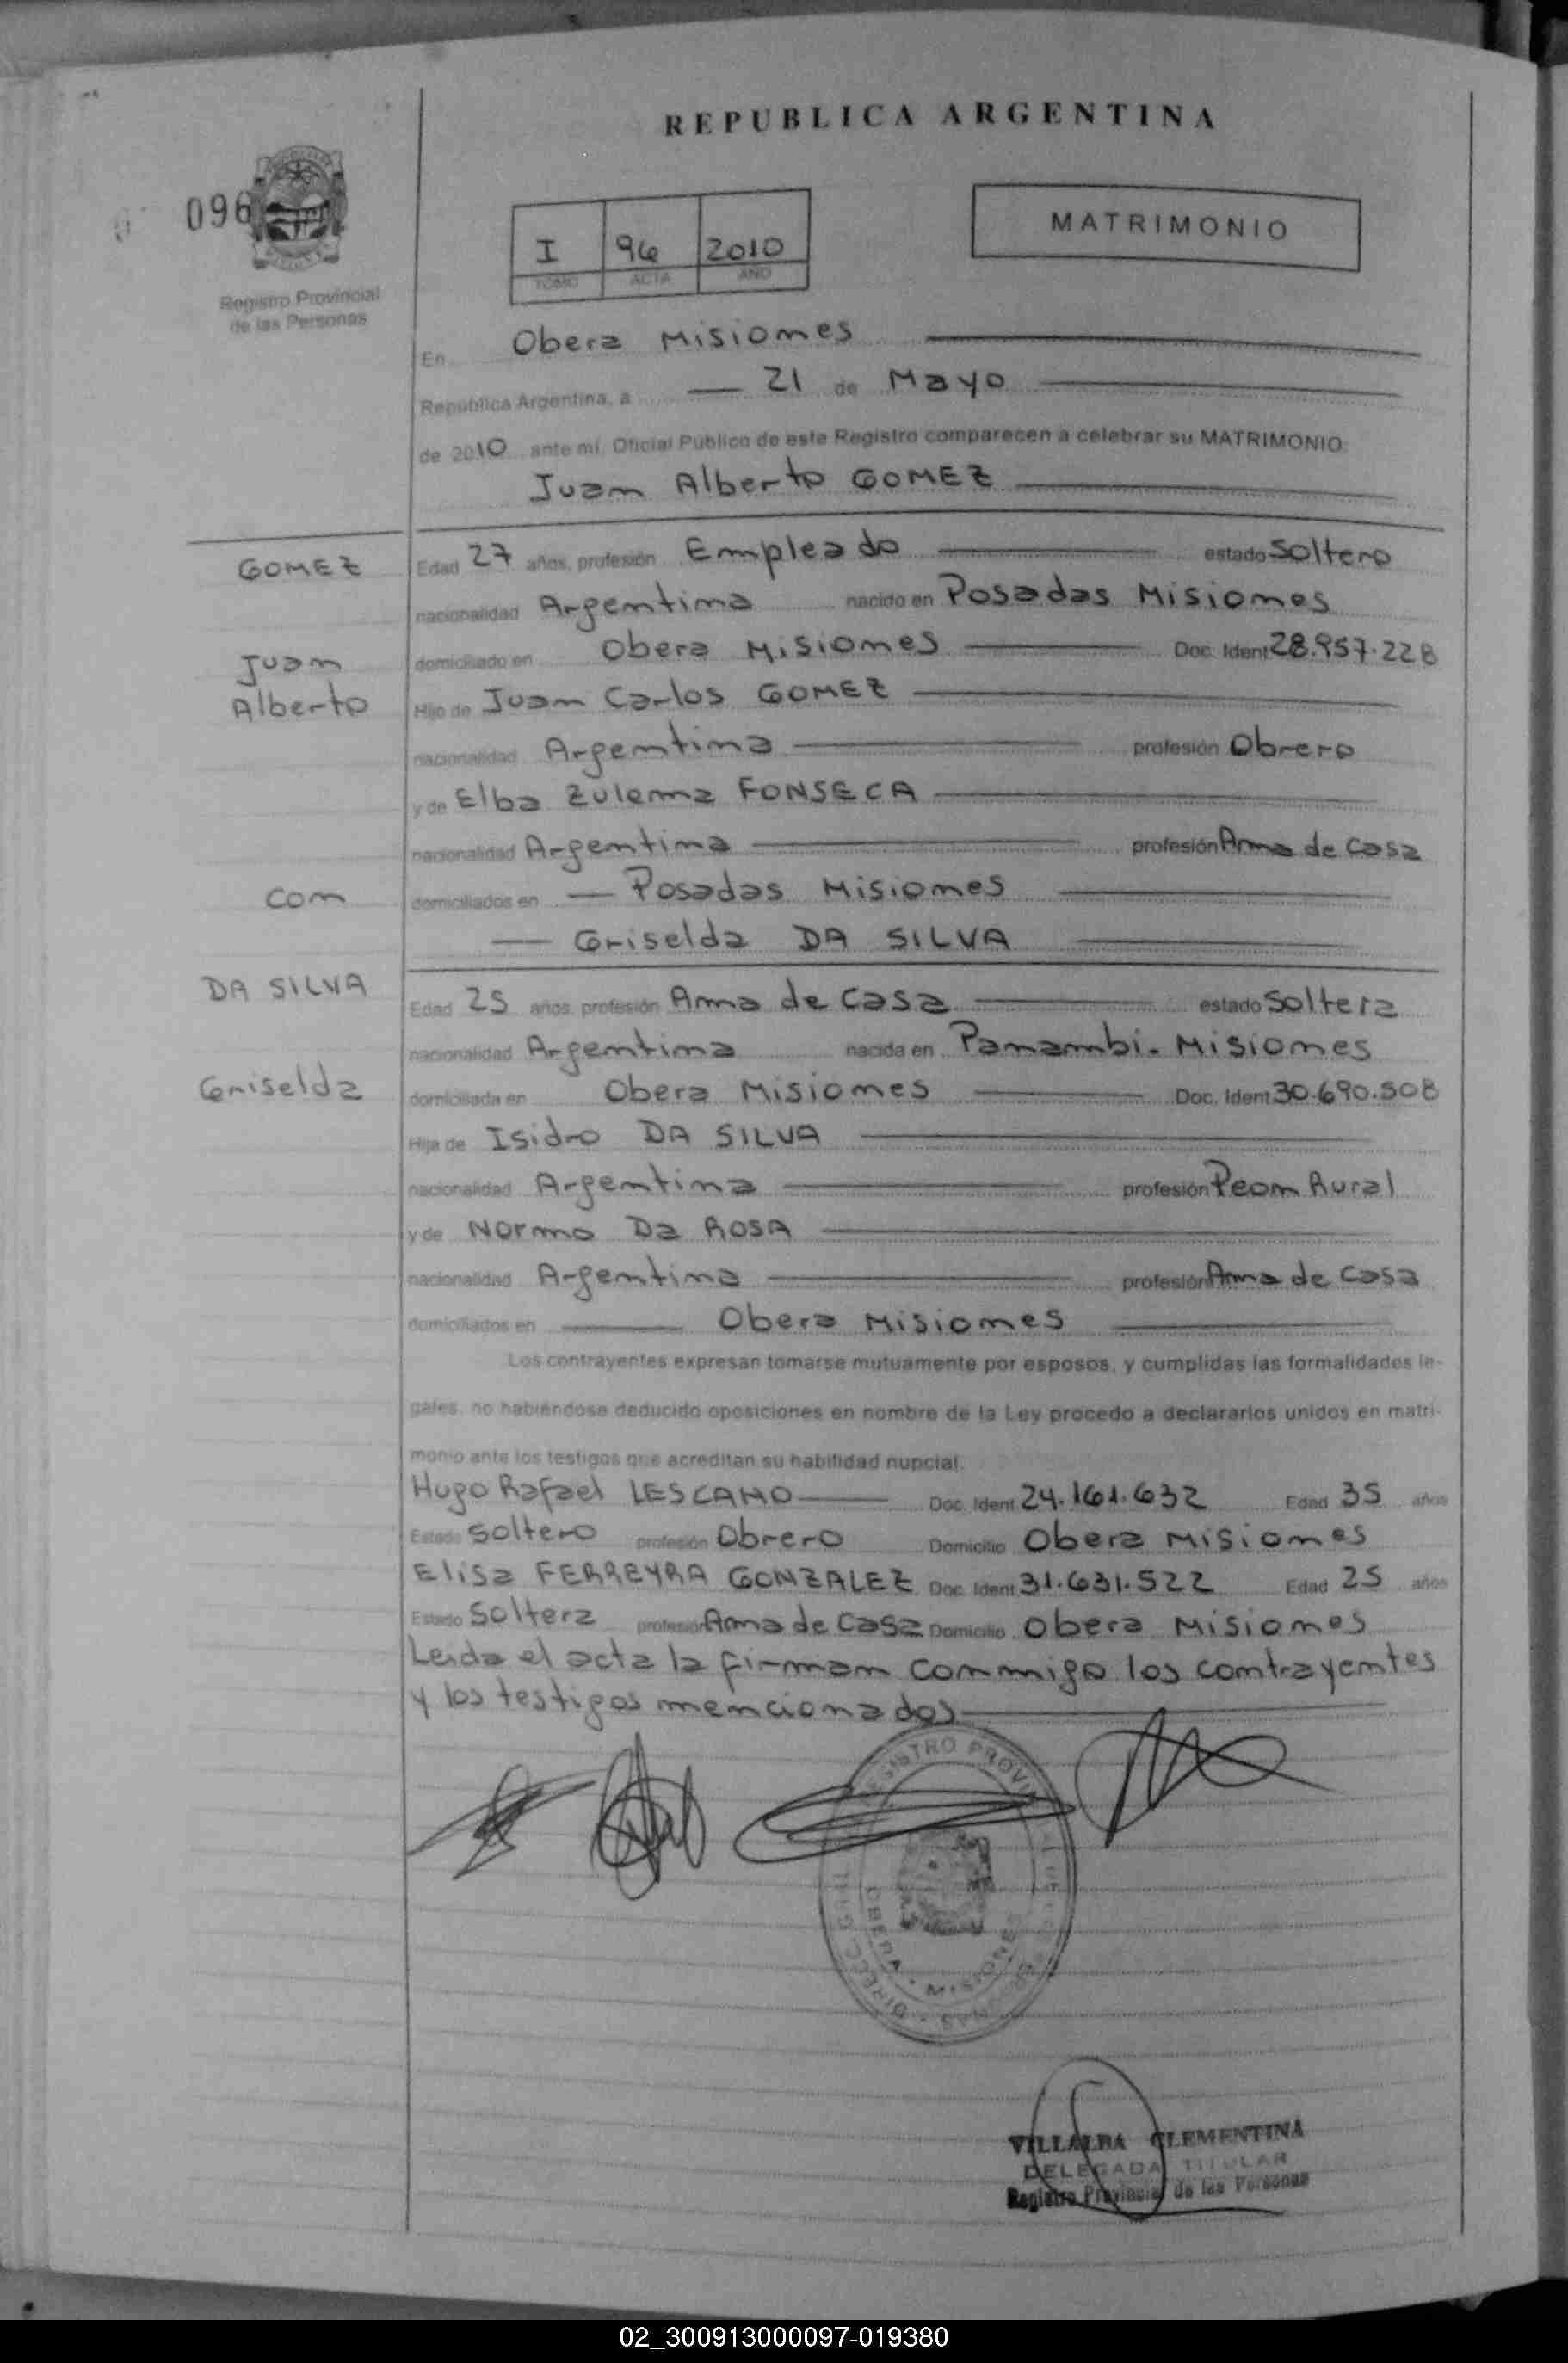 REPUBLICA ARGENTINA
096
I 96 2010
TOMO ACTA AÑO
MATRIMONIO
Registro Provincial
de las Personas
En Obera Misiones
República Argentina, a 21 de Mayo
de 2010 ante mí, Oficial Público de este Registro comparecen a celebrar su MATRIMONIO:
Juan Alberto GOMEZ
GOMEZ
Juan
Alberto
Edad 27 años, profesión Empleado estado Soltero
nacionalidad Argentina nacido en Posadas Misiones
domiciliado en Obera Misiones Doc. Ident 28.957.228
Hijo de Juan Carlos GOMEZ
nacionalidad Argentina profesión Obrero
y de Elba Zulema FONSECA
nacionalidad Argentina profesión Ama de Casa
con
domiciliados en Posadas Misiones
Griselda DA SILVA
DA SILVA
Griselda
Edad 25 años, profesión Ama de Casa estado Soltera
nacionalidad Argentina nacida en Panambi - Misiones
domiciliada en Obera Misiones Doc. Ident 30.690.508
Hija de Isidro DA SILVA
nacionalidad Argentina profesión Peon Rural
y de Norma Da ROSA
nacionalidad Argentina profesión Ama de Casa
domiciliados en Obera Misiones
Los contrayentes expresan tomarse mutuamente por esposos, y cumplidas las formalidades le-
gales, no habiéndose deducido oposiciones en nombre de la Ley procedo a declararlos unidos en matri-
monio ante los testigos que acreditan su habilidad nupcial.
Hugo Rafael LESCANO Doc. Ident 24.161.632 Edad 35 años
Estado Soltero profesión Obrero Domicilio Obera Misiones
Elisa FERREYRA GONZALEZ Doc. Ident 31.631.522 Edad 25 años
Estado Soltera profesión Ama de Casa Domicilio Obera Misiones
Leida el acta la firman conmigo los contrayentes
y los testigos mencionados
REGISTRO PROVINCIAL
OBERA - MISIONES
VILLALBA CLEMENTINA
DELEGADA TITULAR
Registro Provincial de las Personas
02_300913000097-019380